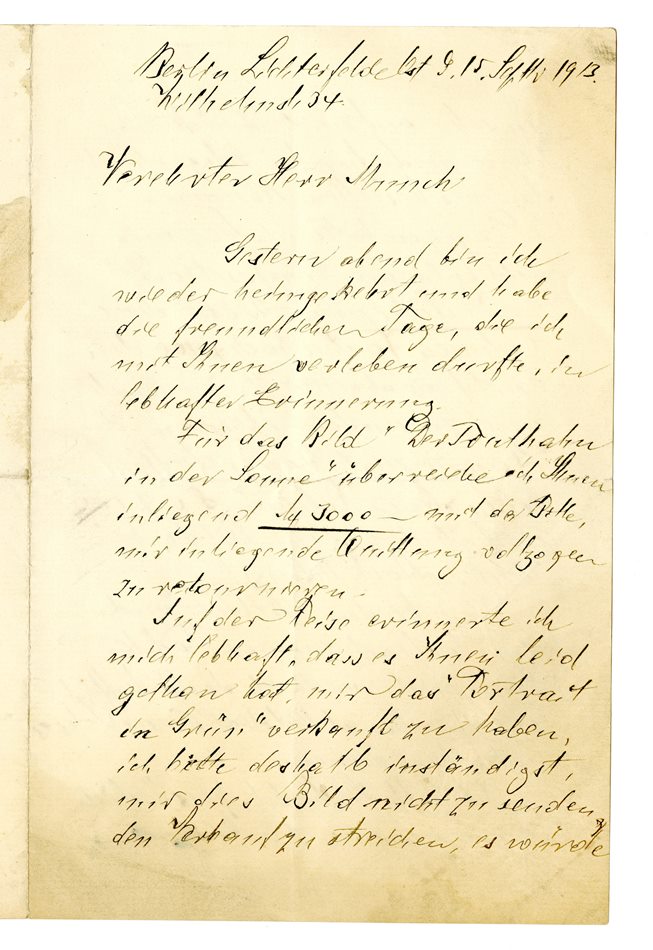 Berlin Lichterfelde Ost d. 15. Septbr 1913.
Wilhelmstr. 34.
Verehrter Herr Munch
Gestern abend bin ich
wieder heimgekehrt und habe
die freundlichen Tage, die ich
mit Ihnen verleben durfte, in
lebhafter Erinnerung.
Für das Bild "Der Truthahn
in der Sonne" überreiche ich Ihnen
inliegend M 3000 – mit der Bitte,
mir inliegende Quittung vollzogen
zu retournieren.
Auf der Reise erinnerte ich
mich lebhaft, dass es Ihnen leid
gethan hat, mir das "Portrait
in Grün" verkauft zu haben,
ich bitte deshalb inständigst,
mir dies Bild nicht zu senden,
den Verkauf zu streichen, es würde